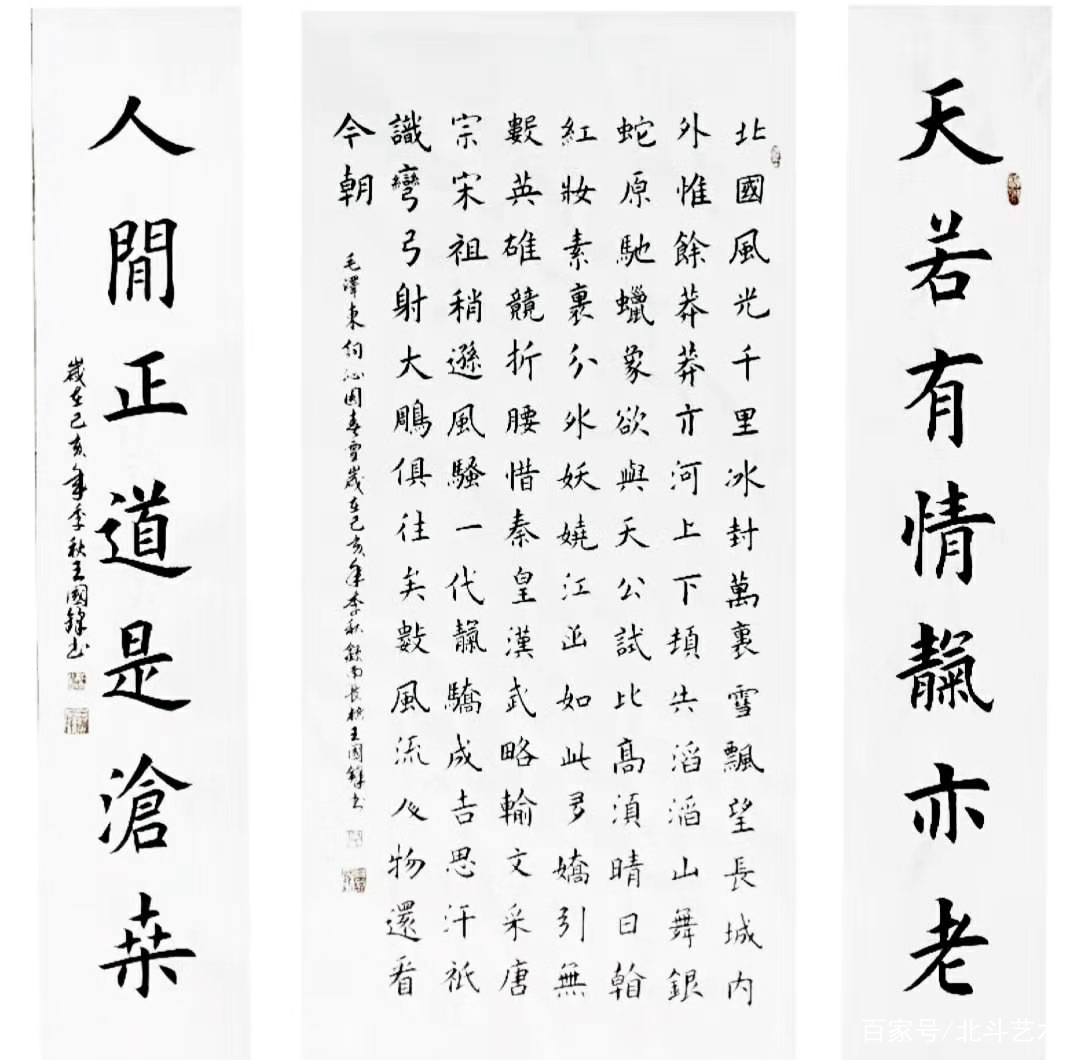 天若有情靝亦老
北國風光千里冰封萬裏雪飄望長城内
外惟餘莽莽亣河上下頓失滔滔山舞銀
蛇原馳蠟象欲與天公試比高須晴日
紅妝素裹分外妖嬈江山如此多嬌引無
數英雄競折腰惜秦皇漢武略輸文采唐
宗宋祖稍遜風騷一代靝驕成吉思汗祇
識彎弓射大鵰俱往矣數風流人物還看
今朝
毛澤東詞沁園春雪歲在己亥年季秋王國鋒書
人閒正道是滄桒
歲在己亥年季秋王國鋒書
百家号/北斗艺术